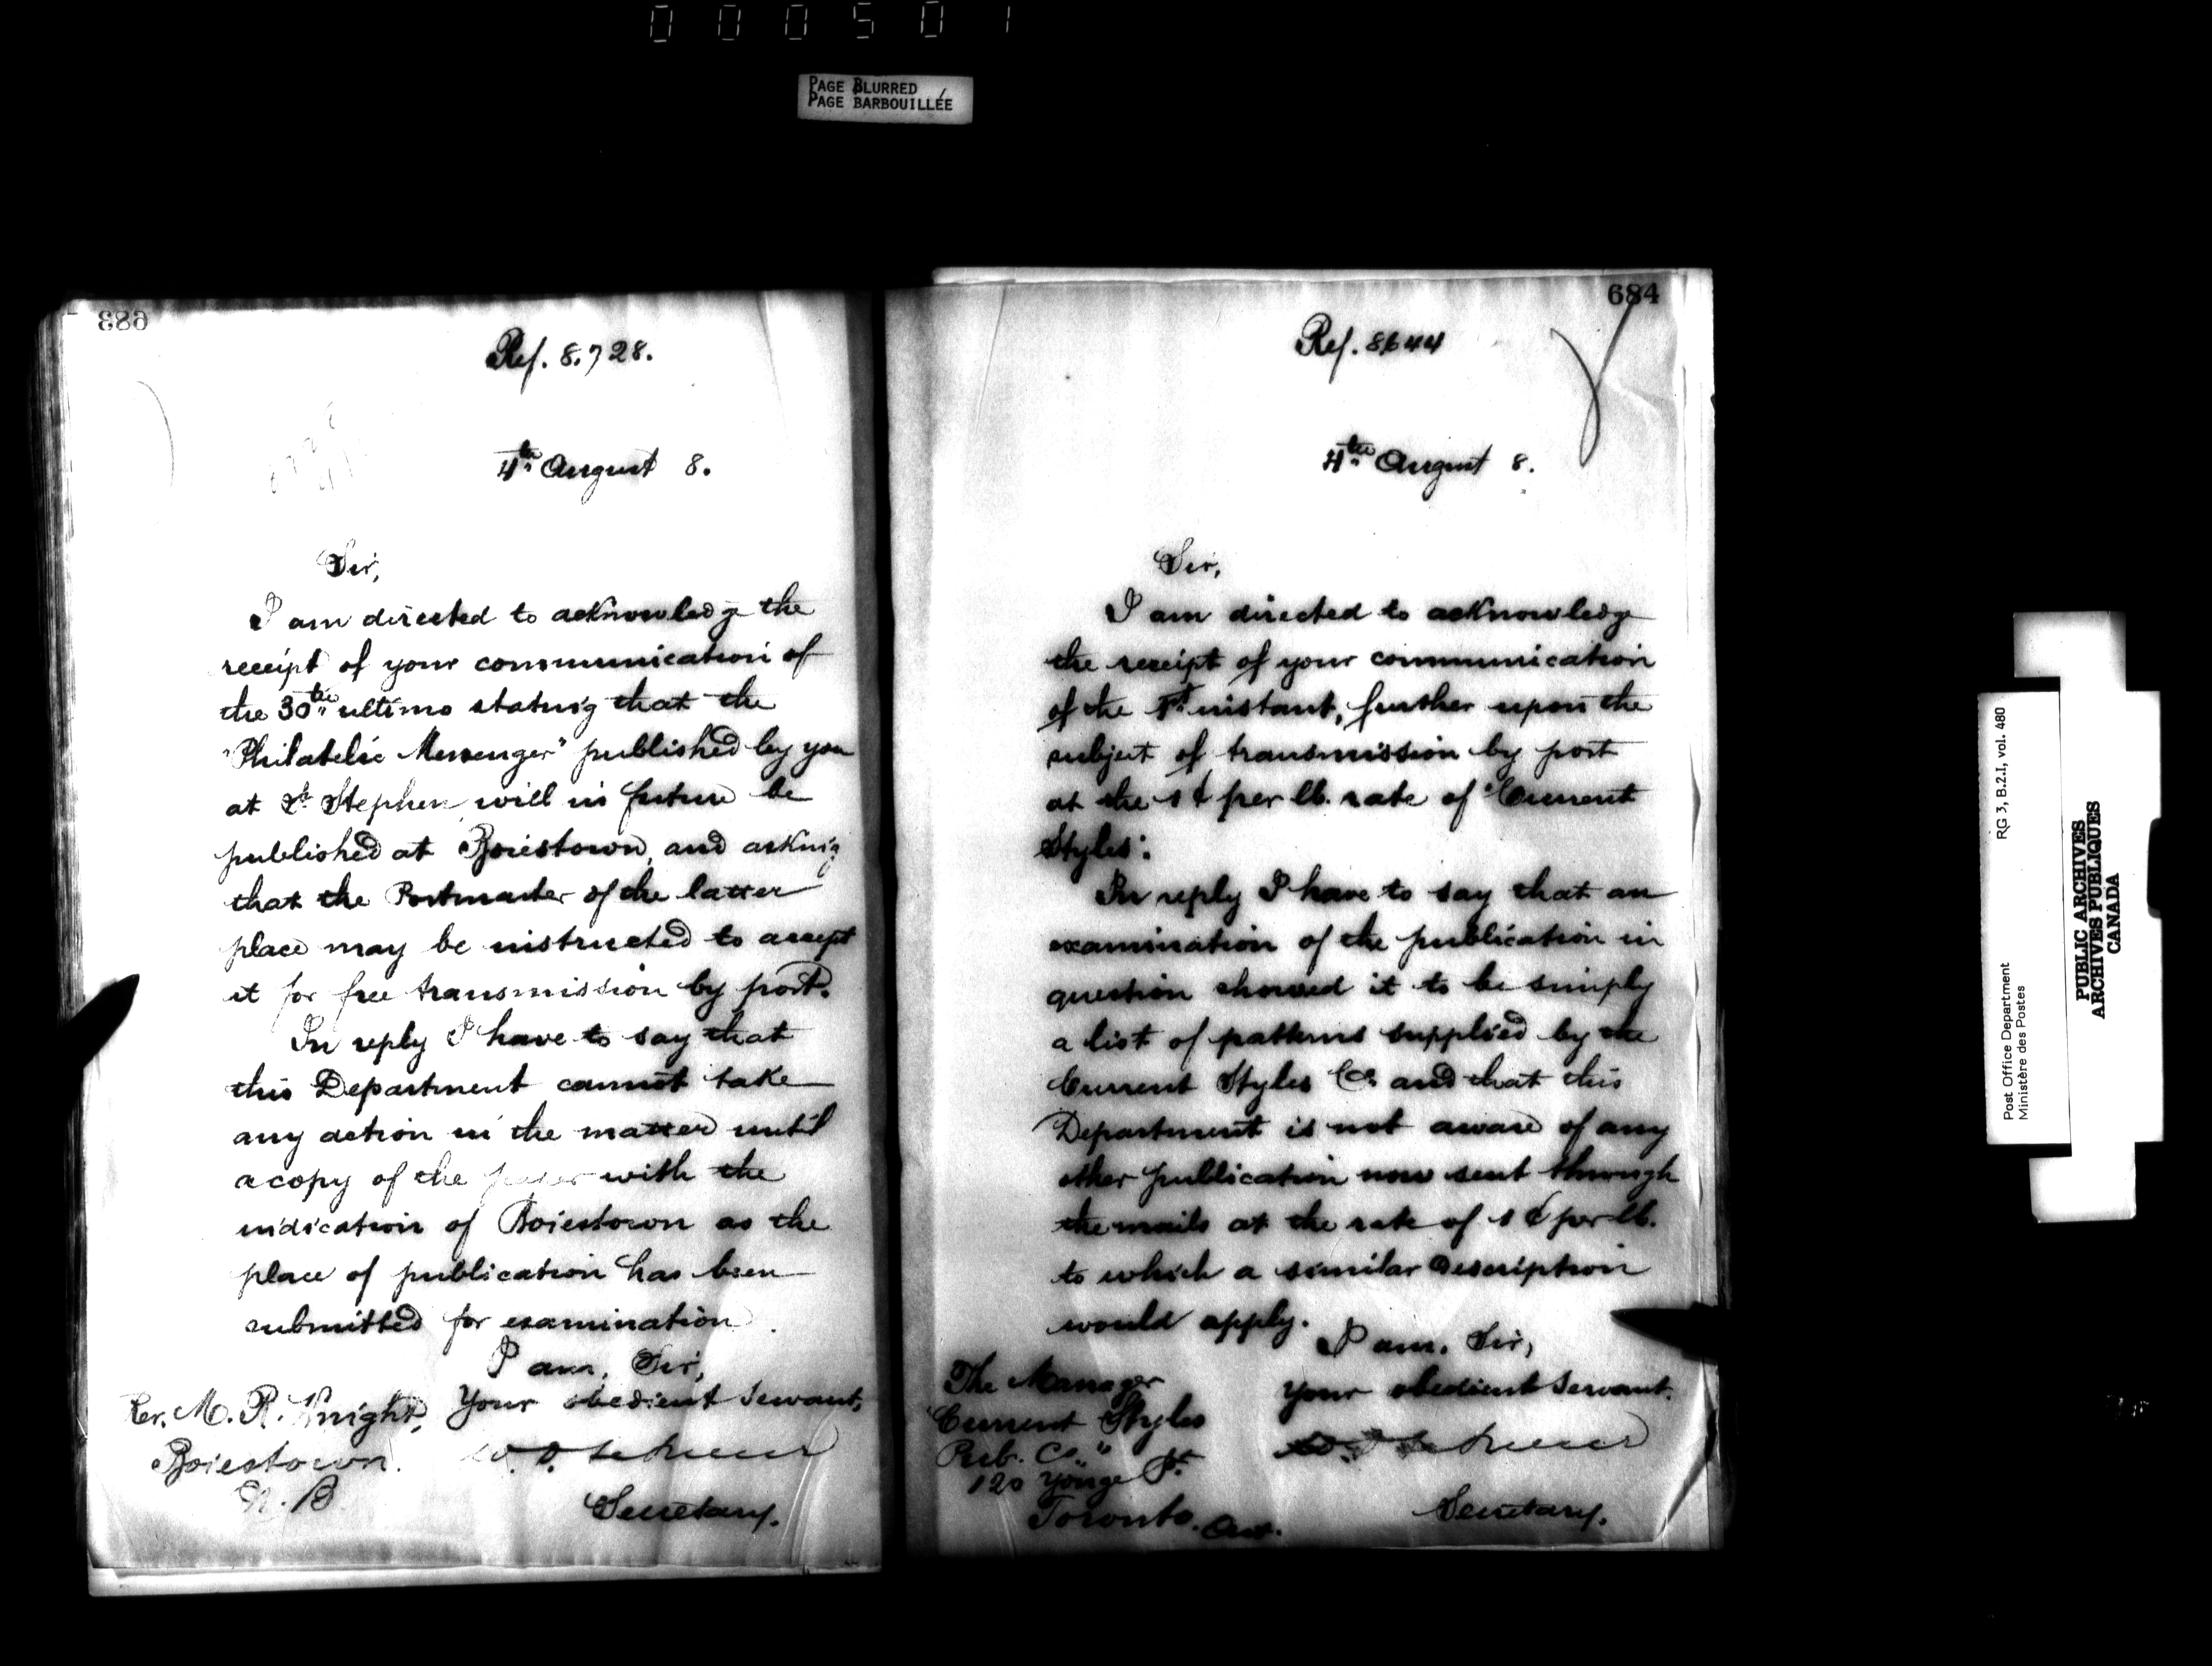 000501
PAGE BLURRED
PAGE BARBOUILLÉE
683
Ref. 8,728.
4th August 8.
Sir,
I am directed to acknowledge the
receipt of your communication of
the 30th ultimo stating that the
"Philatelic Messenger" published by you
at St Stephen, will in future be
published at Boiestown, and asking
that the Postmaster of the latter
place may be instructed to accept
it for free transmission by post.
In reply I have to say that
this Department cannot take
any action in the matter until
a copy of the paper with the
indication of Boiestown as the
place of publication has been
submitted for examination.
I am, Sir,
Your obedient servant,
Rev. M. R. Knight,
Boiestown.
N. B.
Secretary.
684
Ref. 8644
4th August 8.
Sir,
I am directed to acknowledge
the receipt of your communication
of the 1st instant, further upon the
subject of transmission by post
at the 1¢ per lb. rate of "Current
Styles".
In reply I have to say that an
examination of the publication in
question showed it to be simply
a list of patterns supplied by the
Current Styles Co. and that this
Department is not aware of any
other publication now sent through
the mails at the rate of 1¢ per lb.
to which a similar description
would apply.
I am, Sir,
Your obedient servant.
The Manager
"Current Styles
Pub. Co."
120 Yonge St.
Toronto. Ont.
Secretary.
Post Office Department
Ministère des Postes
RG 3, B.2.I, vol. 480
PUBLIC ARCHIVES
ARCHIVES PUBLIQUES
CANADA